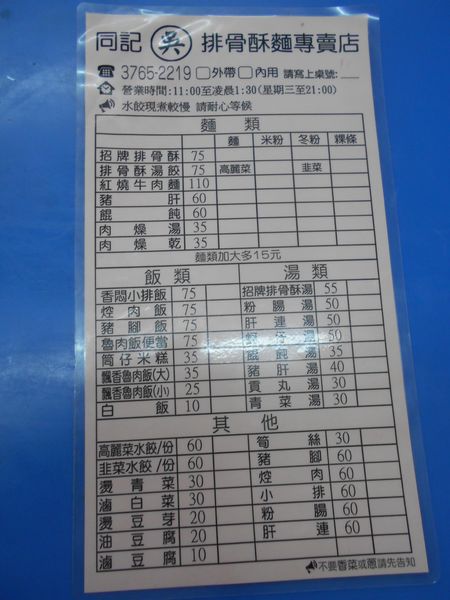 同記 吳 排骨酥麵專賣店
3765-2219 外帶 內用 請寫上桌號:
營業時間:11:00至凌晨1:30(星期三至21:00)
水餃現煮較慢 請耐心等候
麵類
麵 米粉 冬粉 粿條
招牌排骨酥 75
排骨酥湯餃 75 高麗菜 韭菜
紅燒牛肉麵 110
豬肝 60
餛飩 60
肉燥湯 35
肉燥乾 35
麵類加大多15元
飯類
香悶小排飯 75
焢肉飯 75
豬腳飯 75
魯肉飯便當 75
筒仔米糕 35
飄香魯肉飯(大) 35
飄香魯肉飯(小) 25
白飯 10
湯類
招牌排骨酥湯 55
粉腸湯 50
肝連湯 50
湯 50
餛飩湯 35
豬肝湯 40
貢丸湯 30
青菜湯 30
其他
高麗菜水餃/份 60
韭菜水餃/份 60
燙青菜 30
滷白菜 30
燙豆芽 20
油豆腐 20
滷豆腐 10
筍絲 30
豬腳 60
焢肉 60
小排 60
粉腸 60
肝連 60
不要香菜或蔥請先告知